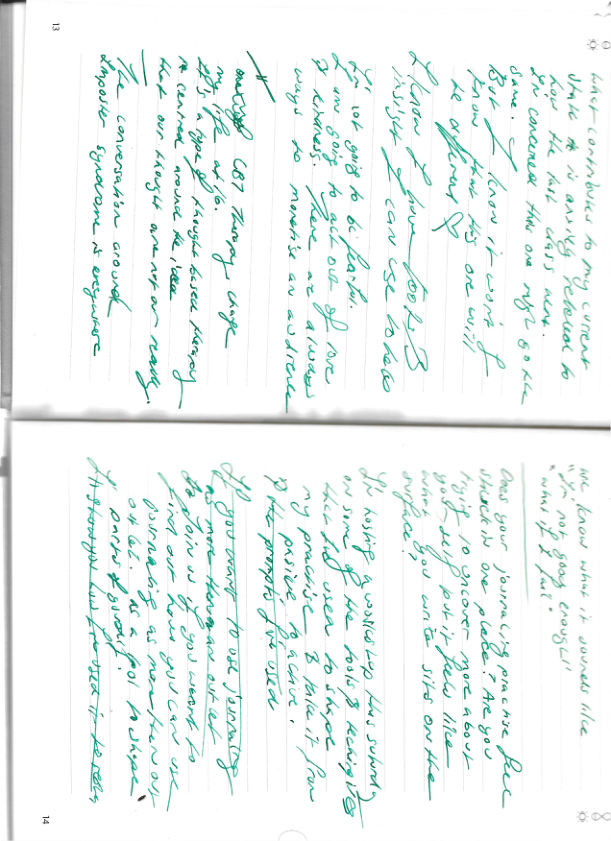 what contributes to my current
state is anxiety related to
how the last class went.
I'm concerned this one might go the
same.
But I know it won't. I
know that this one will
be different
I know I have tools &
insight I can use to help
I'm not going to be fearful.
I am going to act out of love
& kindness. There are always
ways to monetise an audience
CBT Therapy change
my life at 16.
It's a type of thought based therapy
centred around the idea
that our thought are not our reality.
The conversation around
imposter syndrome is everywhere
13
we know what it sounds like
"I'm not good enough"
"what if I fail"
Does your journaling practice feel
stuck in one place? Are you
trying to uncover more about
your self but it feels like
what you write sits on the
surface?
I'm hosting a workshop this saturday
on some of the tools & techniques
that I've used to shape
my practice & take it from
passive to active.
the prompts I've used
If you want to use journaling
as more than an outlet
join us if you want to
find out how you can use
journaling as more than an
outlet. As a tool to shape
parts of yourself.
14